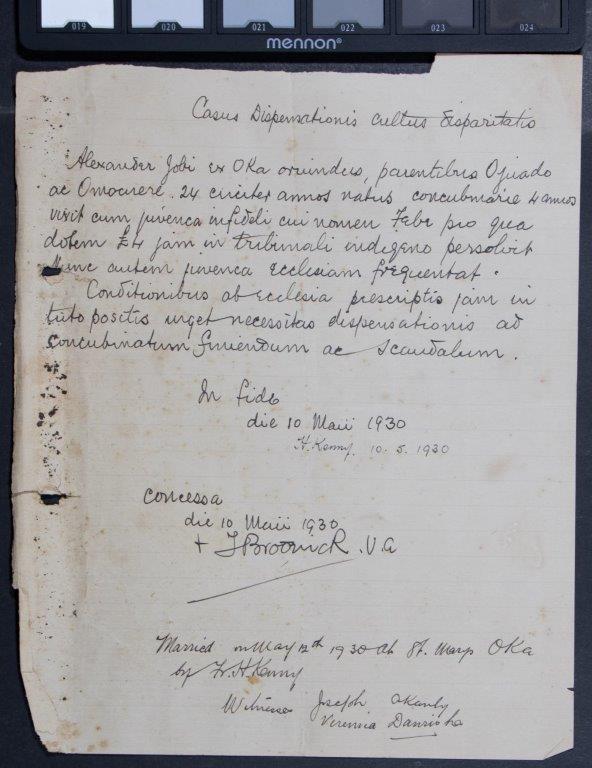 019 020 021 022 023 024
mennon®
Casus Dispensationis cultus disparitatis
Alexander Jobi ex OKa oriundus, parentibus Ojuado
ac Omocuere. 24 circiter annos natus concubinarie 4 annos
vixit cum juvenca infideli cui nomen Febe pro qua
dotem £4 jam in tribunali indigeno persolvit
Nunc autem juvenca Ecclesiam frequentat.
Conditionibus ab Ecclesia prescriptis jam in
tuto positis urget necessitas dispensationis ad
concubinatum finiendum ac scandalum.
In fide
die 10 Maii 1930
H. Kenny. 10. 5. 1930
Concessa
die 10 Maii 1930
+ T Broderick. V.A
Married on May 12th 1930 at St. Marys OKa
by Fr. H. Kenny
Witnesses Joseph
Veronica